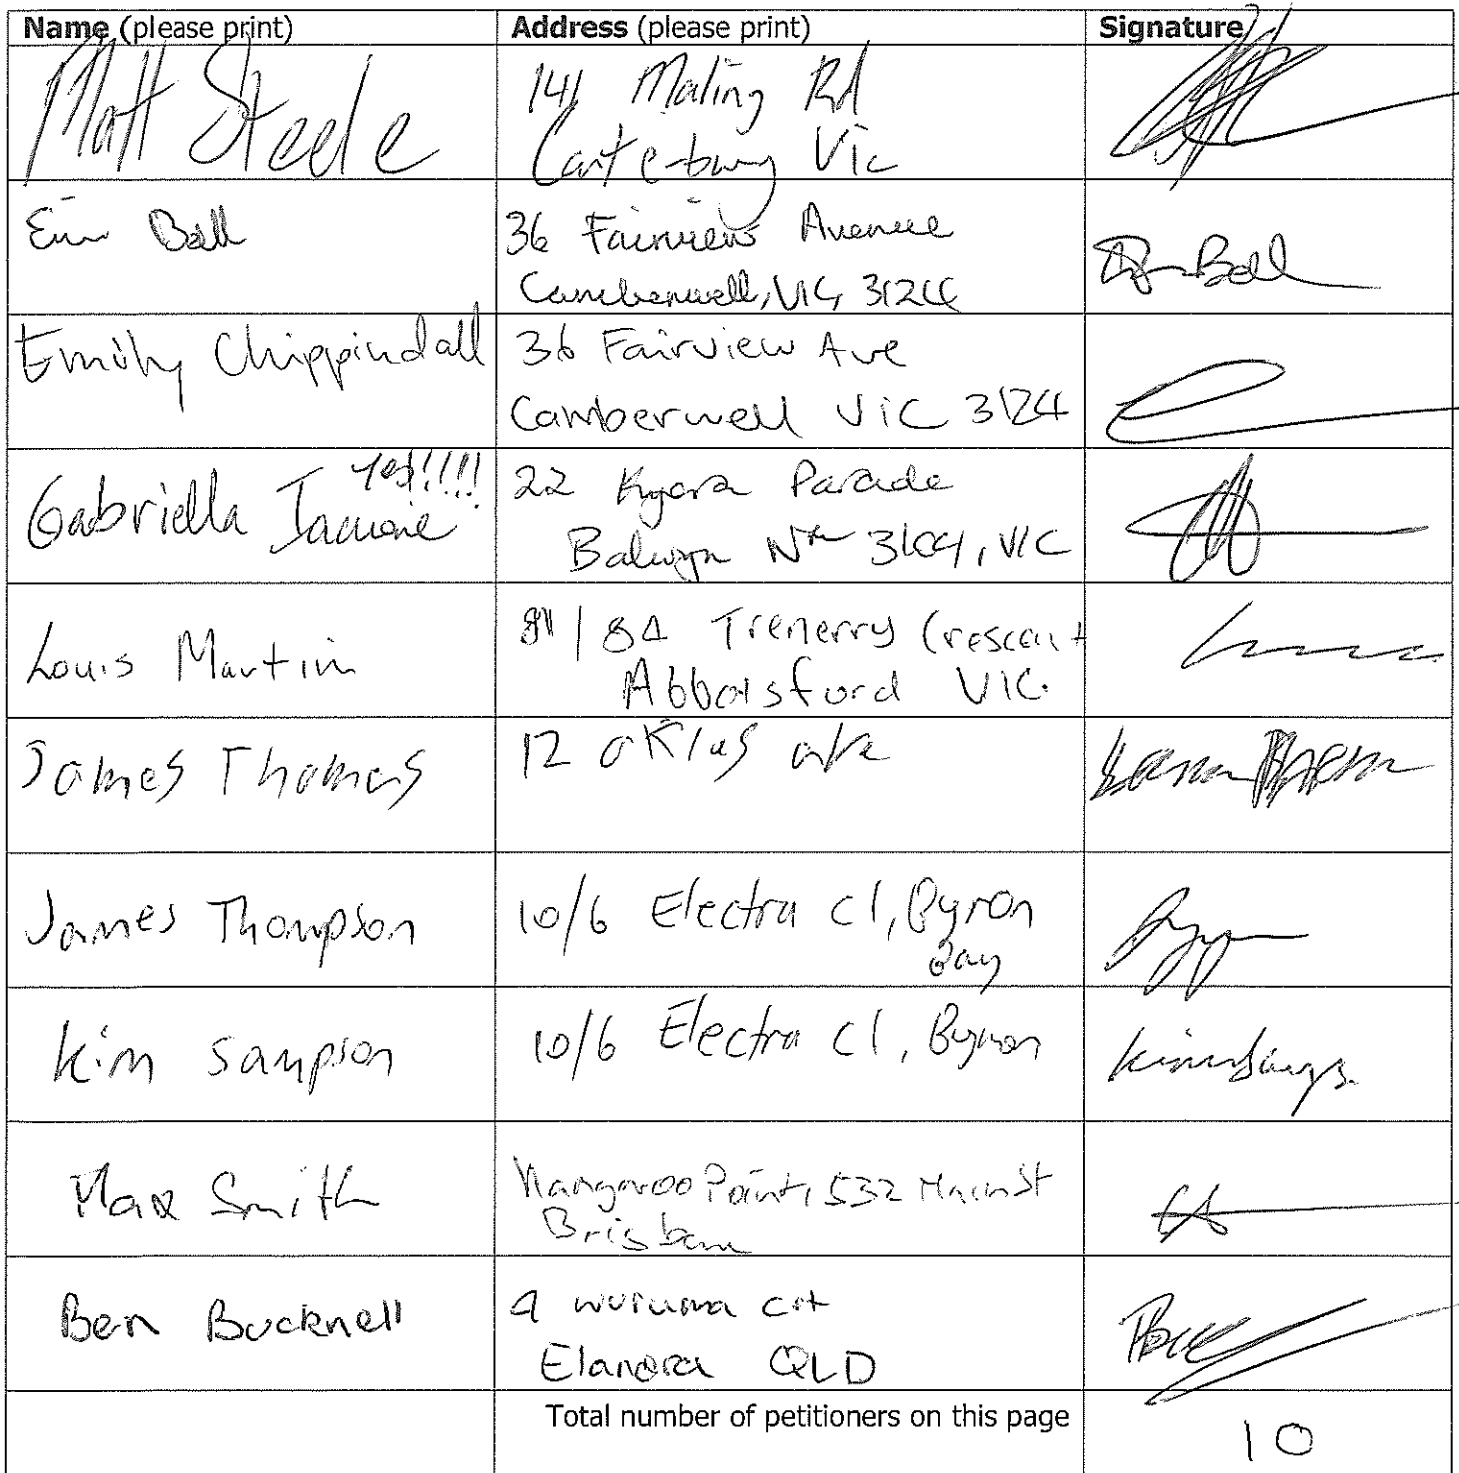 Name (please print) Address (please print) Signature
Matt Steele 141 Maling Rd
Canterbury Vic
Erin Ball 36 Fairview Avenue
Camberwell, VIC, 3124
Emily Chippindall 36 Fairview Ave
Camberwell VIC 3124
Yes!!!!
Gabriella 22 Kyora Parade
Balwyn Nth 3104, VIC
Louis Martin / 84 Trenerry Crescent
Abbotsford VIC.
James Thomas 12
James Thompson 10/6 Electra cl, Byron
Bay
Kim Sampson 10/6 Electra cl, Byron
Max Smith Kangaroo Point, 532 Main St
Brisbane
Ben Bucknell 9 wuruma crt
Elanora QLD
Total number of petitioners on this page 10